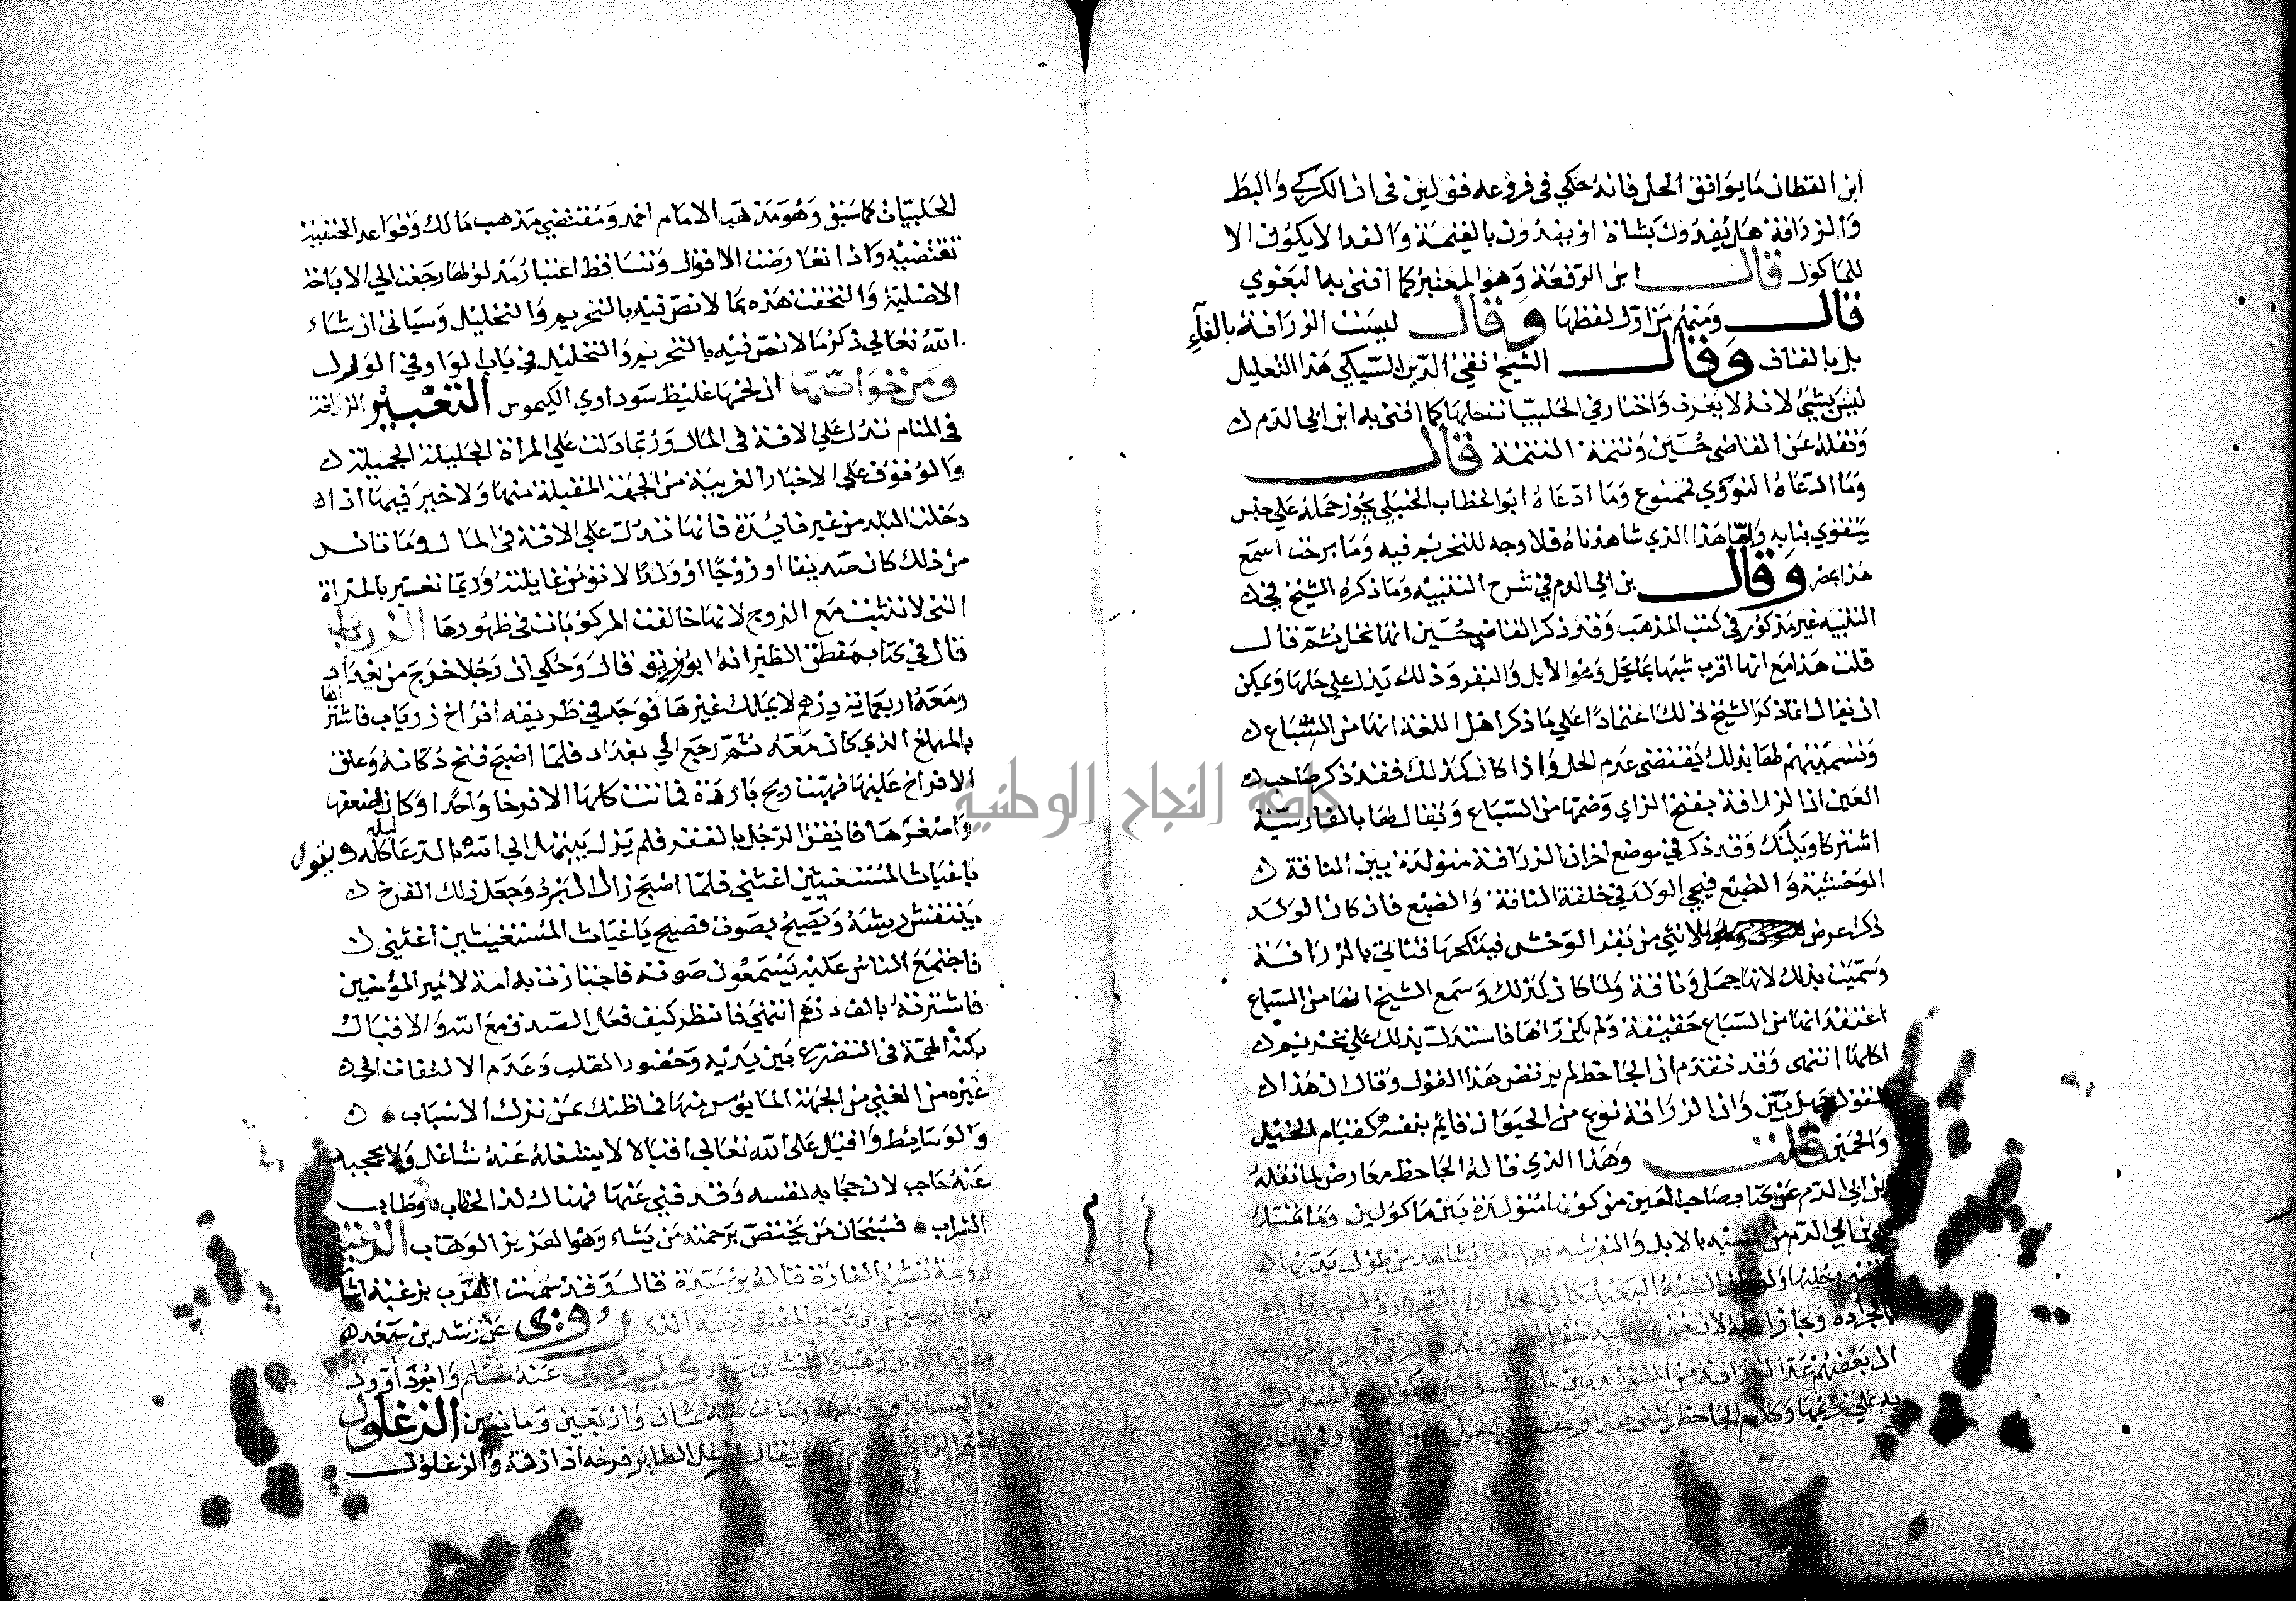 ابن القطان ما يوافق الحل فانه حكي في فروعه قولين في ان الكركي والبط
والزرافة هل يفدون بشاة او يفدون بالقيمة والفدا لا يكون الا
للماكول قال ابن الرفعة وهو المعتبر كما افتى به البغوي
قال ومنهم من اول لفظها وقال ليست الزرافة بالفاء
بل بالقاف وقال الشيخ تقي الدين السبكي هذا التعليل
ليس بشي لانه لا يعرف واختار في الحلبيات حلها كما افتى به ابن ابي الدم
ونقله عن القاضي حسين وتتمة التتمة قال
وما ادعاه النووي ممنوع وما ادعاه ابو الخطاب الحنبلي يجوز حمله على جنس
يتقوي بنابه واما هذا الذي شاهدناه فلا وجه للتحريم فيه وما برحت اسمع
هذا بمصر وقال بن ابي الدم في شرح التنبيه وما ذكره الشيخ في
التنبيه غير مذكور في كتب المذهب وقد ذكر القاضي حسين انها تحل ثم قال
قلت هذا مع انها اقرب شبها بما يحل وهو الابل والبقر وذلك يدل على حلها ويمكن
ان يقال انما ذكر الشيخ ذلك اعتمادا على ما ذكر اهل اللغة انها من السباع
وتسميتهم لها بذلك يقتضي عدم الحل واذا كان كذلك فقد ذكر صاحب
العين ان الزرافة بفتح الزاي وضمها من السباع ويقال لها بالفارسية
اشتركاوبلنك وقد ذكر في موضع اخر ان الزرافة متولدة بين الناقة
الوحشية والضبع فيجي الولد في خلقة الناقة والضبع فان كان الولد
ذكرا عرض للانثي من بقر الوحش فينكحها فتاتي بالزرافة
وسميت بذلك لانها جمل وناقة ولما كان كذلك وسمع الشيخ انها من السباع
اعتقد انها من السباع حقيقة ولم يكن راها فاستدل بذلك على تحريم
اكلها انتهى وقد تقدم ان الجاحظ لم يرتض هذا القول وقال ان هذا
القول جهل بين وان الزرافة نوع من الحيوان قايم بنفسه كقيام الخيل
والحمير قلت وهذا الذي قاله الجاحظ معارض لما نقله
ابن ابي الدم عن كتاب صاحب العين من كونها متولدة بين ماكولين وما تمسك
به بن ابي الدم من الشبه بالابل والبقر شبه بعيد لما يشاهد من طول يديها
وقصر رجليها ولو كان الشبه البعيد كافيا لحل اكل الصرارة لشبهها
بالجرادة ولجاز لان خفها يشبه خف الجمل وقد ذكر في شرح المهذب
ان بعضهم عد الزرافة من المتولد بين ماكول وغير ماكول واستدل
به على تحريمها وكلام الجاحظ ينفي هذا ويقتضي الحل وهو المختار في الفتاوى
الحلبيات كما سبق وهو مذهب الامام احمد ومقتضي مذهب مالك وقواعد الحنفية
تقتضيه واذا تعارضت الاقوال وتساقط اعتبار مدلولها رجعنا الي الاباحة
الاصلية والتحقت هذه بما لا نص فيه بالتحريم والتحليل وسياتي ان شاء
الله تعالي ذكر ما لا نص فيه بالتحريم والتحليل في باب الواو في الورل
ومن خواتها ان لحمها غليظ سوداوي الكيموس التعبير الزرافة
في المنام تدل على الافة في المال وربما دلت على المراة الجليلة الجميلة
والوقوف على الاخبار الغريبة من الجهة المقبلة منها ولا خير فيها اذا
دخلت البلد من غير فايدة فانها تدل على الافة في المال وما تانس
من ذلك كان صديقا او زوجا او ولدا لا تؤمن غايلته وربما تعتبر بالمراة
التي لا تثبت مع الزوج لانها خالفت المركوبات في ظهورها الزرياب
قال في كتاب منطق الطير انه ابو زريق قال وحكي ان رجلا خرج من بغداد
ومعه اربعماية درهم لا يملك غيرها فوجد في طريقه افراخ زرياب فاشتراها
بالمبلغ الذي كان معه ثم رجع الي بغداد فلما اصبح فتح دكانه وعلق
الافراخ عليها فهبت ريح باردة فماتت كلها الا فرخا واحدا وكان اضعفها
واصغرها فايقن الرجل بالفقر فلم يزل يبتهل الي الله بالدعا ليله كله ويقول
ياغياث المستغيثين اغثني فلما اصبح زال البرد وجعل ذلك الفرخ
ينتفش ريشه ويصيح بصوت فصيح ياغياث المستغيثين اغثني
فاجتمع الناس عليه يستمعون صوته فاجتازت به امة لامير المؤمنين
فاشترته بالف درهم انتهي فانظر كيف فعل الصدق مع الله والاقبال
بكنه الهمة في التضرع بين يديه وحضور القلب وعدم الالتفات الي
غيره من الغني من الجهة المايوس منها فما ظنك بمن ترك الاسباب
والوسايط واقبل على الله تعالي اقبالا لا يشغله عنه شاغل ولا يحجبه
عنه حاجب لان حجابه نفسه وقد فني عنها فهناك لذ الخطاب وطاب
الشراب فسبحان من يختص برحمته من يشاء وهو العزيز الوهاب الزغبة
دويبة تشبه الفارة قاله بن سيدة قال وقد سمت العرب بزغبة اشار
بذلك الي عيسى بن حماد المصري زغبة الذي روى عن رشد بن سعد
وعبد الله بن وهب والليث بن سعد وروى عنه مسلم وابو داوود
والنساي وبن ماجة ومات سنة ثمان واربعين ومايتين الزغلول
بضم الزاي يقال ازغل الطائر فرخه اذا زقه والزغلول